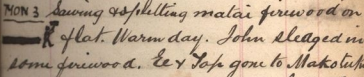 MON 3 Sawing & splitting matai firewood on
flat. Warm day. John sledged in
some firewood. Ee & Tap gone to Makotuk